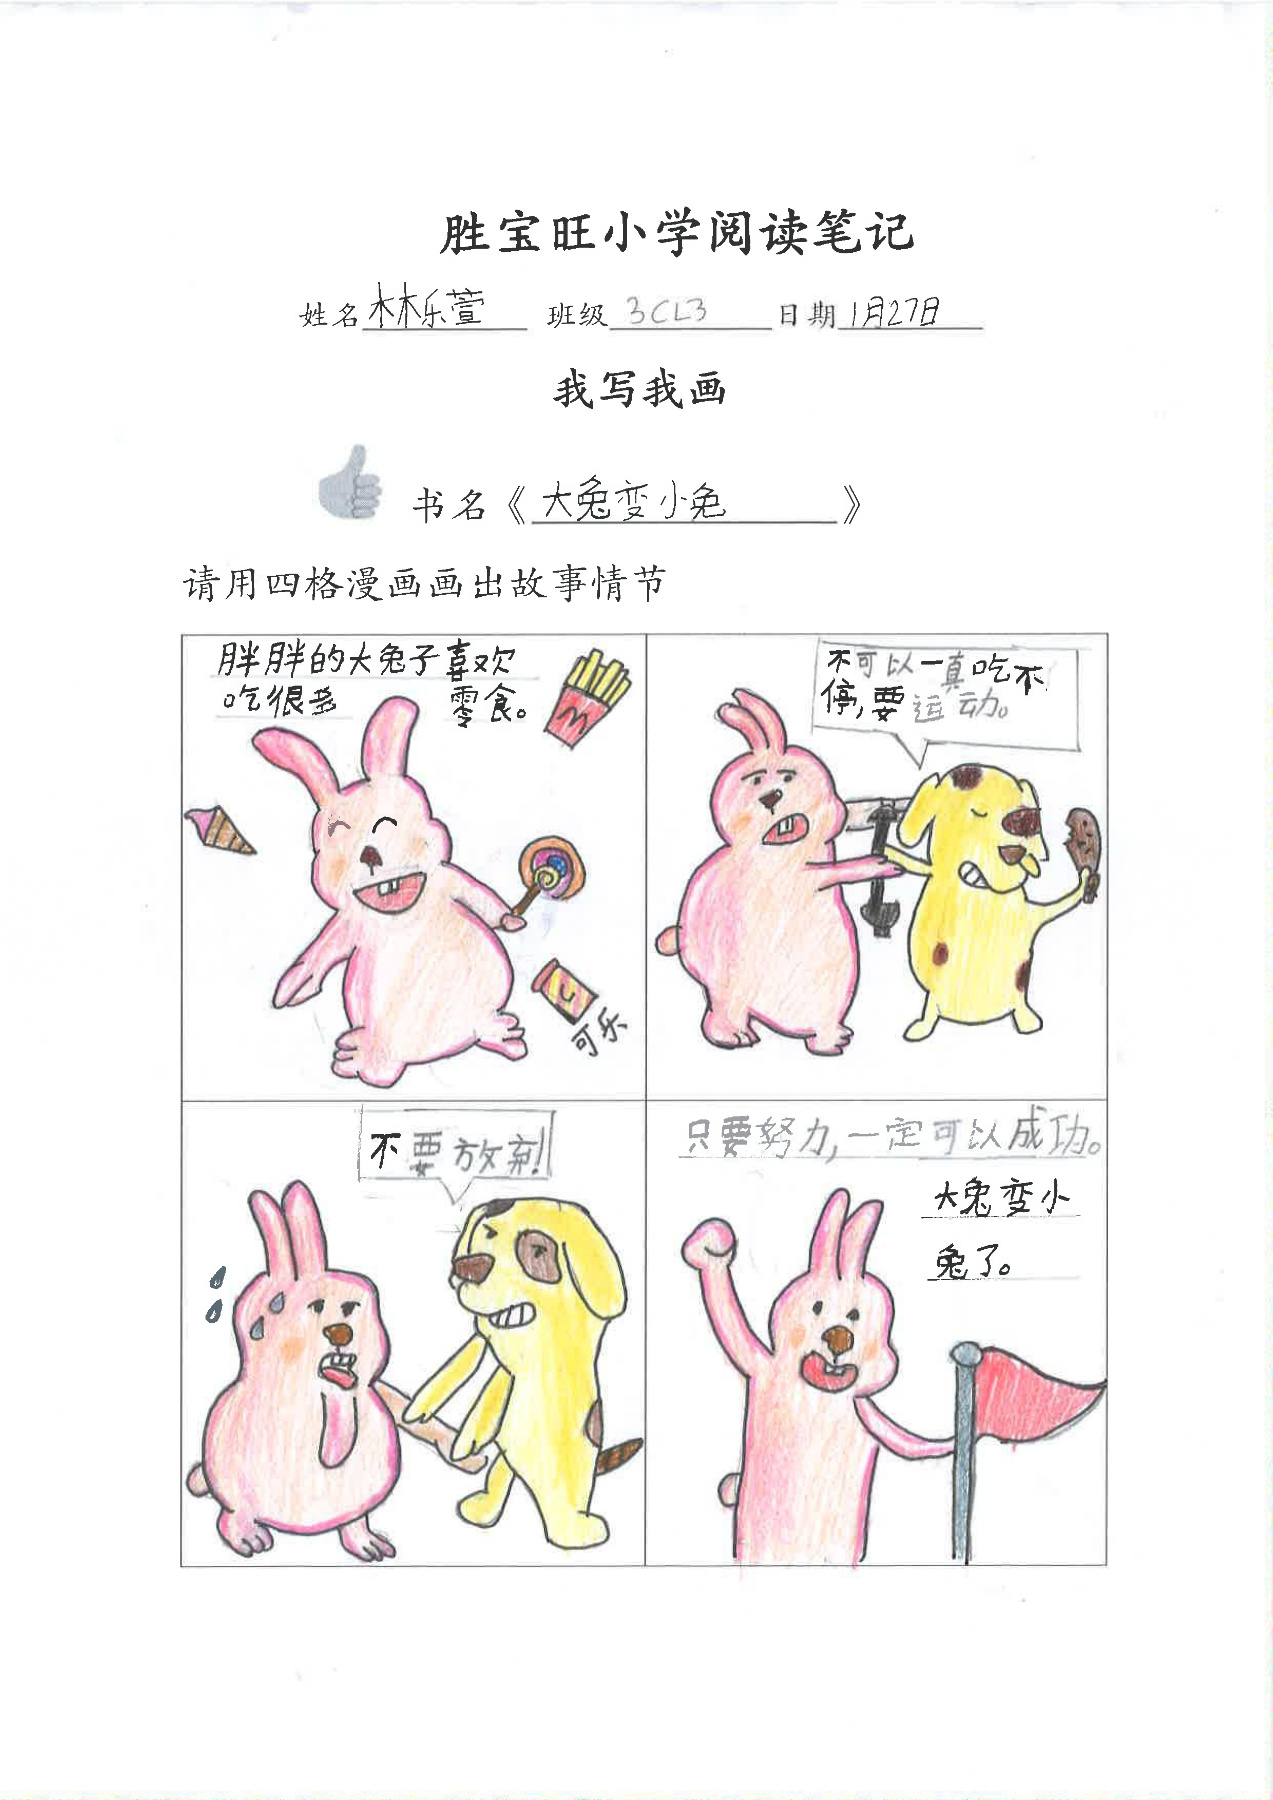 胜宝旺小学阅读笔记
姓名 林乐萱 班级 3CL3 日期 1月27日
我写我画
书名《大兔变小兔》
请用四格漫画画出故事情节
胖胖的大兔子喜欢
吃很多 零食。
可乐
不可以一真吃不
停,要运动。
不要放弃!
只要努力,一定可以成功。
大兔变小
兔了。